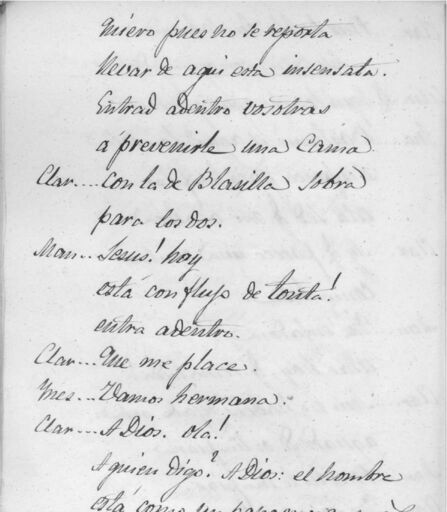 Quiero pues no se reporta
llevar de aqui esta insensata.
Entrad adentro vosotras
á prevenirle una cama
Clar... con la de Blasilla sobra
para los dos.
Man... Jesus! hoy
está con flujo de tonta!
entra adentro.
Clar... Que me place.
Ynes... Vamos hermana.
Clar... A Dios. ola!
A quien digo? A Dios: el hombre
está como un